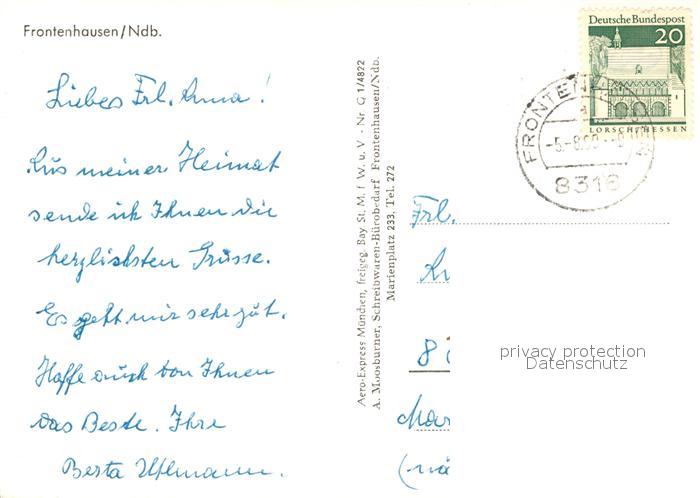 Frontenhausen/Ndb.
Liebes Frl. Anna!
Aus meiner Heimat
sende ich Ihnen die
herzlichsten Grüsse.
Es geht mir sehr gut.
Hoffe auch von Ihnen
das Beste. Ihre
Berta Uhlmann.
Aero-Express München, freigeg. Bay. St. M. f W. u. V - Nr. G 1/4822
A. Moosburner, Schreibwaren-Bürobedarf Frontenhausen/Ndb.
Marienplatz 233, Tel. 272
Deutsche Bundespost
20
LORSCH/HESSEN
8316
Frl.
8
privacy protection
Datenschutz
Mar